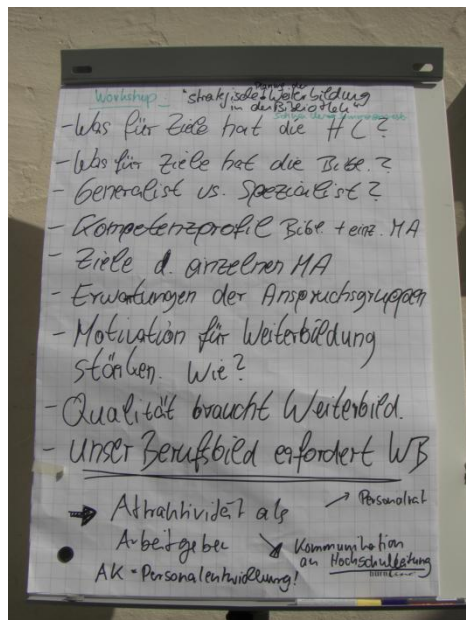 Workshop: "strategische Weiterbildung
in der Bibliothek"
- Was für Ziele hat die HL?
- Was für Ziele hat die Bibl.?
- Generalist vs. Spezialist?
- Kompetenzprofil Bibl. + einz. MA
- Ziele d. einzelnen MA
- Erwartungen der Anspruchsgruppen
- Motivation für Weiterbildung
stärken. Wie?
- Qualität braucht Weiterbild.
- Unser Berufsbild erfordert WB
→ Attraktivität als
Arbeitgeber
→ Personalrat
→ Kommunikation
an Hochschulleitung
AK - Personalentwicklung!